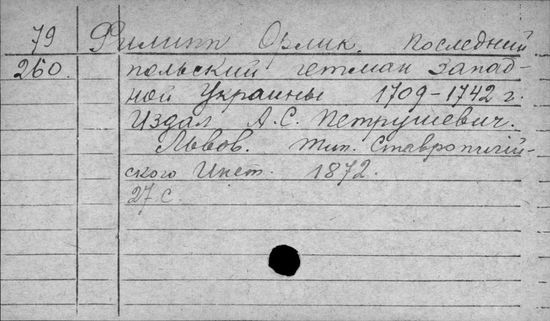 79 Филипп Орлик. Последний
260. польский гетман Запад-
ной Украины 1709-1742 г.
Издал А.С. Петрушевич.
Львов. Тип. Ставропигий-
ского Инст. 1872.
27 с.